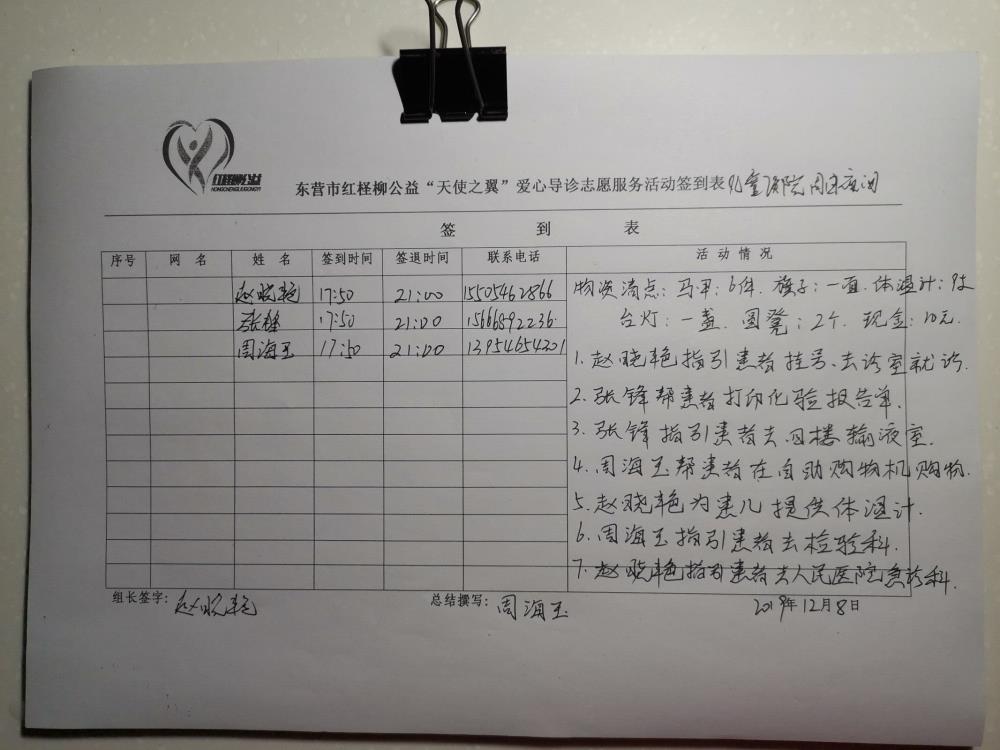 红柽柳公益
HONGCHENGLIUGONGYI
东营市红柽柳公益“天使之翼”爱心导诊志愿服务活动签到表 儿童医院周末夜间
签 到 表
序号 网 名 姓 名 签到时间 签退时间 联系电话 活 动 情 况
赵晓艳 17:50 21:00 15505462866
张锋 17:50 21:00 15666892236
周海玉 17:50 21:00 13954654201
物资清点: 马甲: 6件. 旗子: 一面. 体温计: 9支
台灯: 一盏. 圆凳: 2个. 现金: 10元.
1. 赵晓艳指引患者挂号、去诊室就诊.
2. 张锋帮患者打印化验报告单.
3. 张锋指引患者去四楼输液室.
4. 周海玉帮患者在自助购物机购物.
5. 赵晓艳为患儿提供体温计.
6. 周海玉指引患者去检验科.
7. 赵晓艳指引患者去人民医院急诊科.
组长签字: 赵晓艳 总结撰写: 周海玉 2019年12月8日